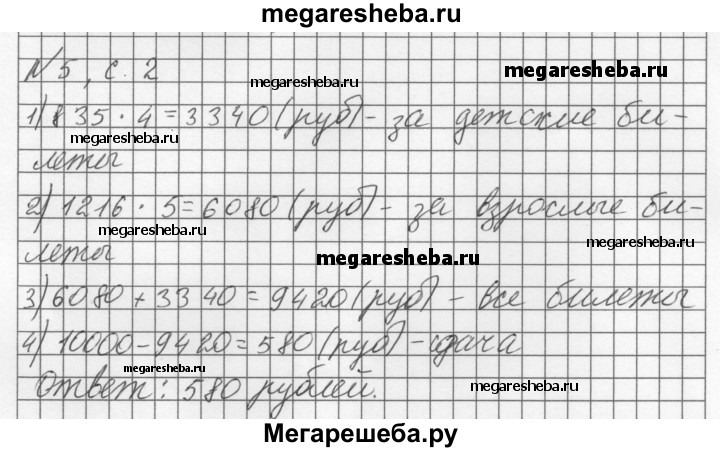 megaresheba.ru
№5, с. 2
megaresheba.ru
megaresheba.ru
1) 835 · 4 = 3340 (руб) - за детские би-
megaresheba.ru
леты
2) 1216 · 5 = 6080 (руб) - за взрослые би-
megaresheba.ru
megaresheba.ru
леты
megaresheba.ru
3) 6080 + 3340 = 9420 (руб) - все билеты
4) 10000 - 9420 = 580 (руб) - сдача
megaresheba.ru
Ответ: 580 рублей.
megaresheba.ru
Мегарешеба.ру